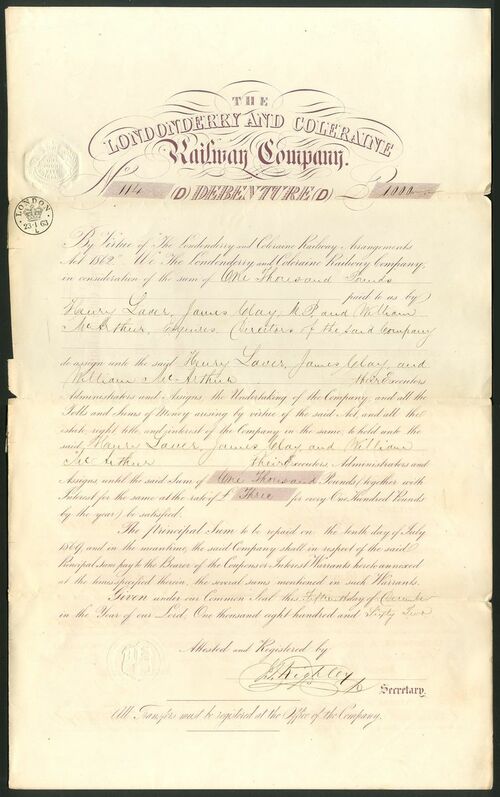 THE
LONDONDERRY AND COLERAINE
Railway Company.
No 114 (D) DEBENTURE (D) £ 1000
LONDON
23·1·63
By Virtue of The Londonderry and Coleraine Railway Arrangements
Act 1862. We The Londonderry and Coleraine Railway Company,
in consideration of the sum of One Thousand Pounds
paid to us by
Henry Laver, James Clay, M.P. and William
McArthur, Esquires Directors of the said Company
do assign unto the said Henry Laver, James Clay, and
William McArthur their Executors
Administrators and Assigns, the Undertaking of the Company, and all the
Tolls and Sums of Money arising by virtue of the said Act, and all the
estate right title and interest of the Company in the same, to hold unto the
said Henry Laver, James Clay and William
McArthur their Executors Administrators and
Assigns until the said Sum of One Thousand Pounds (together with
Interest for the same at the rate of £ Three for every One Hundred Pounds
by the year) be satisfied.
The principal Sum to be repaid on the tenth day of July
1869, and in the meantime the said Company shall in respect of the said
Principal Sum pay to the Bearer of the Coupons or Interest Warrants hereto annexed
at the times specified therein, the several sums mentioned in such Warrants.
Given under our Common Seal this day of December
in the Year of our Lord, One thousand eight hundred and Sixty Two
Attested and Registered by
Secretary.
All Transfers must be registered at the Office of the Company.